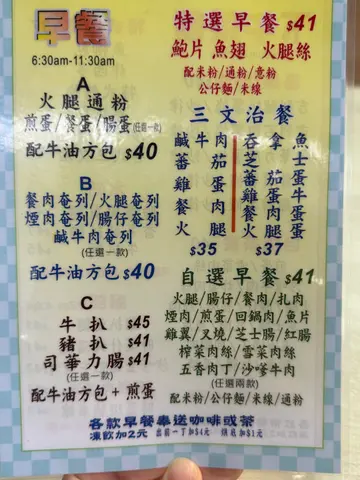 早餐
6:30am-11:30am
A
火腿通粉
煎蛋/餐蛋/腸蛋(任選一款)
配牛油方包 $40
B
餐肉奄列/火腿奄列
煙肉奄列/腸仔奄列
鹹牛肉奄列
(任選一款)
配牛油方包 $40
C
牛扒 $45
豬扒 $41
司華力腸 $41
(任選一款)
配牛油方包+煎蛋
特選早餐 $41
鮑片 魚翅 火腿絲
配米粉/通粉/意粉
公仔麵/米線
三文治餐
鹹牛肉
蕃茄
雞蛋
餐肉
火腿
$35
吞拿魚
芝士
蕃茄蛋
餐肉蛋
火腿蛋
$37
自選早餐 $41
火腿/腸仔/餐肉/扎肉
煙肉/煎蛋/回鍋肉/魚片
雞翼/叉燒/芝士腸/紅腸
榨菜肉絲/雪菜肉絲
五香肉丁/沙嗲牛肉
(任選兩款)
配米粉/公仔麵/米線/通粉
各款早餐奉送咖啡或茶
凍飲加2元 出前一丁加$4元 烘底加$1元